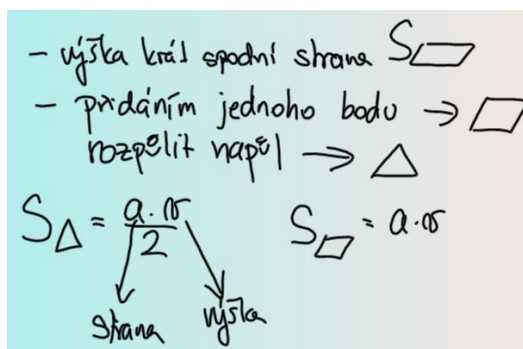 - výška krát spodní strana S▱
- přidáním jednoho bodu → ▱
rozpělit napěl → △
S△ = a·v/2 S▱ = a·v
strana výška